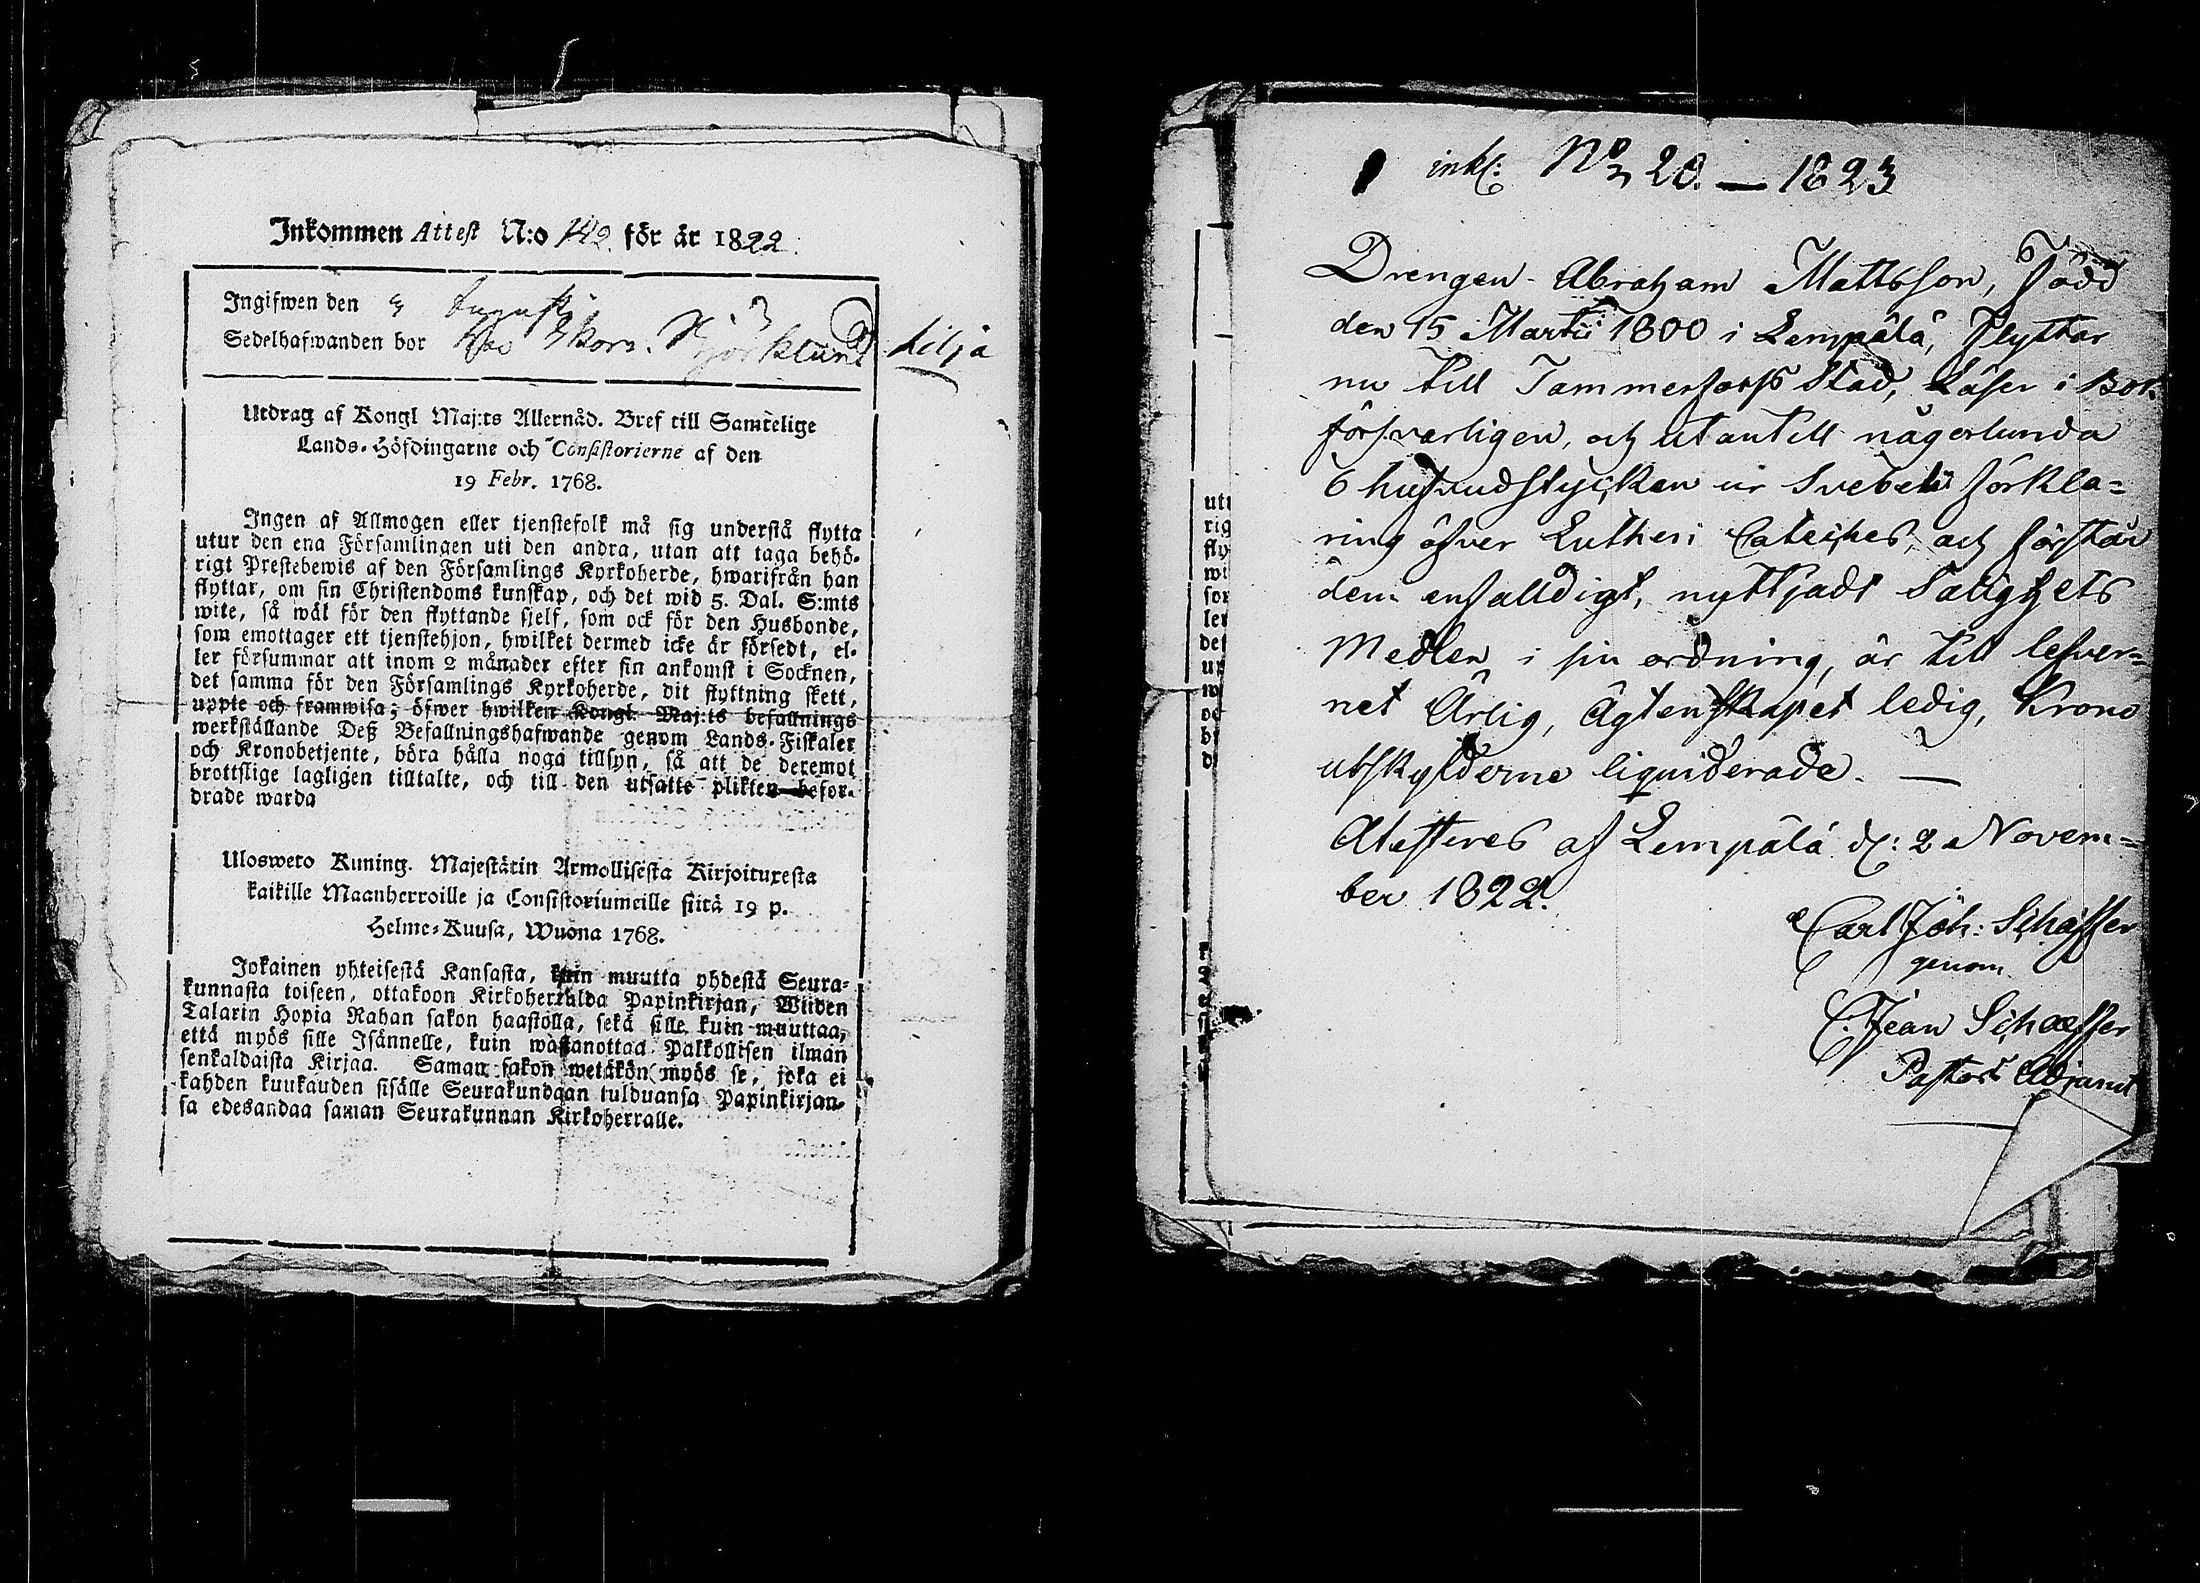 Inkommen Attest N:o 142. för år 1822.
Ingifwen den 3 Augusti
Sedelhafwanden bor Hos Skorn. Björklund Lilja
Utdrag af Kongl Maj:ts Allernåd. Bref till Samtelige
Lands-Höfdingarne och Consistorierne af den
19 Febr. 1768.
Ingen af Allmogen eller tjenstefolk må sig understå flytta
utur den ena Församlingen uti den andra, utan att taga behö-
rigt Prestebewis af den Församlings Kyrkoherde, hwarifrån han
flyttar, om sin Christendoms kunskap, och det wid 5. Dal. S:mts
wite, så wäl för den flyttande sjelf, som ock för den Husbonde,
som emottager ett tjenstehjon, hwilket dermed icke är försedt, el-
ler försummar att inom 2 månader efter sin ankomst i Socknen,
det samma för den Församlings Kyrkoherde, dit flyttning skett,
uppte och framwisa; öfwer hwilken Kongl. Maj:ts befallnings
werkställande Deß Befallningshafwande genom Lands-Fiskaler
och Kronobetjente, böra hålla noga tillsyn, så att de deremot
brottslige lagligen tilltalte, och till den utsatte plikten befor-
drade warda
Ulosweto Kuning. Majestätin Armollisesta Kirjoituxesta
kaikille Maanherroille ja Consistoriumeille siitä 19 p.
Helme-Kuusa, Wuona 1768.
Jokainen yhteisestä Kansasta, kuin muutta yhdestä Seura-
kunnasta toiseen, ottakoon Kirkoherralda Papinkirjan, Wiiden
Talarin Hopia Rahan sakon haastolla, sekä sille kuin muuttaa,
että myös sille Isännelle, kuin wastanottaa Palkollisen ilman
senkaldaista Kirjaa. Saman sakon wetäkön myös se, joka ei
kahden kuukauden sisälle Seurakundaan tulduansa Papinkirjan-
sa edesandaa saman Seurakunnan Kirkoherralle.
inkl: No 20. — 1823
Drengen Abraham Mattsson, Född
den 15 Martii 1800 i Lempälä, Flyttar
nu till Tammerfors Stad, Läser i Bok
försvarligen, och utantill någorlunda
6 hufvudstycken ur Svebelii förkla=
ring öfver Lutheri Cateches, och förstår
dem enfalldigt, nyttjadt Salighets
Medlen i sin ordning, är till lefver=
net Ärlig, Ägtenskapet ledig, Krono
utskylderne liquiderade. —
Atesteres af Lempälä d: 2 Novem=
ber 1822.
Carl Joh: Schæffer
genom
C. Jean Schæffer
Pastors Adjunct